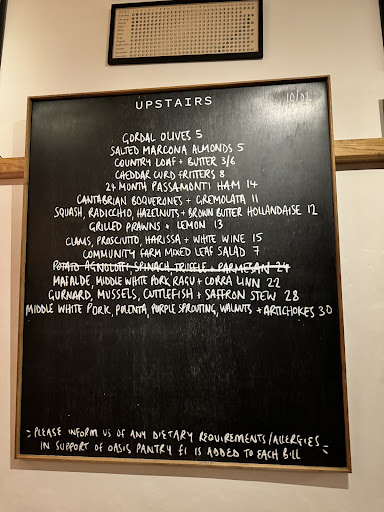 UPSTAIRS
10/02
GORDAL OLIVES 5
SALTED MARCONA ALMONDS 5
COUNTRY LOAF + BUTTER 3/6
CHEDDAR CURD FRITTERS 8
24 MONTH PASSAMONTI HAM 14
CANTABRIAN BOQUERONES + GREMOLATA 11
SQUASH, RADICCHIO, HAZELNUTS + BROWN BUTTER HOLLANDAISE 12
GRILLED PRAWNS + LEMON 13
CLAMS, PROSCIUTTO, HARISSA + WHITE WINE 15
COMMUNITY FARM MIXED LEAF SALAD 7
POTATO AGNOLOTTI, SPINACH, TRUFFLE + PARMESAN 24
MAFALDE, MIDDLE WHITE PORK RAGU + CORRA LINN 22
GURNARD, MUSSELS, CUTTLEFISH + SAFFRON STEW 28
MIDDLE WHITE PORK, POLENTA, PURPLE SPROUTING, WALNUTS + ARTICHOKES 30
PLEASE INFORM US OF ANY DIETARY REQUIREMENTS/ALLERGIES
IN SUPPORT OF OASIS PANTRY £1 IS ADDED TO EACH BILL